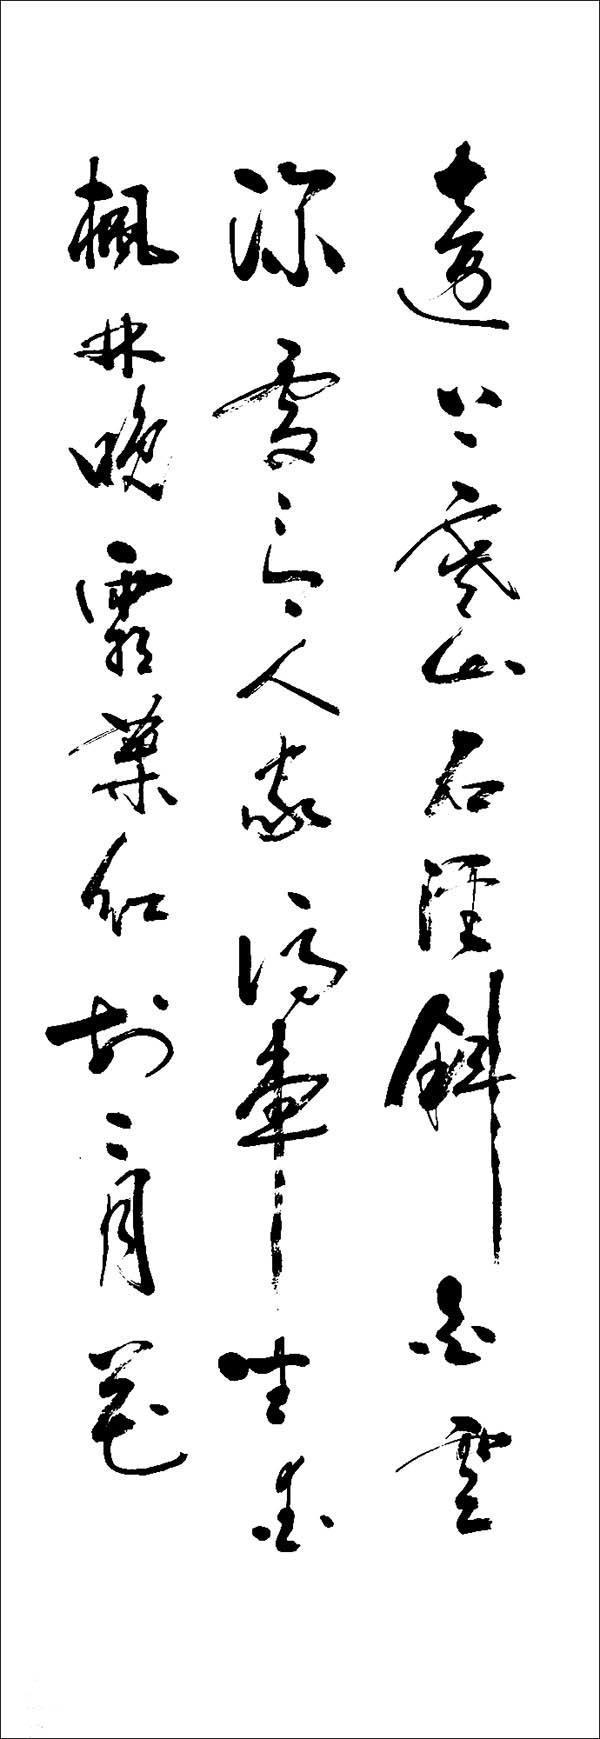 遠上寒山石徑斜白雲
深處有人家停車坐愛
楓林晚霜葉紅於二月花